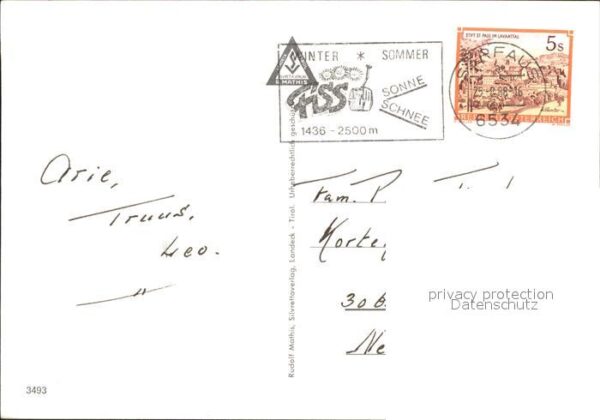 WINTER * SOMMER
FISS
SONNE
SCHNEE
1436 - 2500 m
R. MATHIS
STIFT ST. PAUL IM LAVANTTAL
5 S
REPUBLIK ÖSTERREICH
SERFAUS
6534
Arie,
Truus,
Leo.
Fam. P
Korte
30 B
Ne
privacy protection
Datenschutz
Rudolf Mathis, Silvrettaverlag, Landeck - Tirol. Urheberrechtlich geschützt
3493